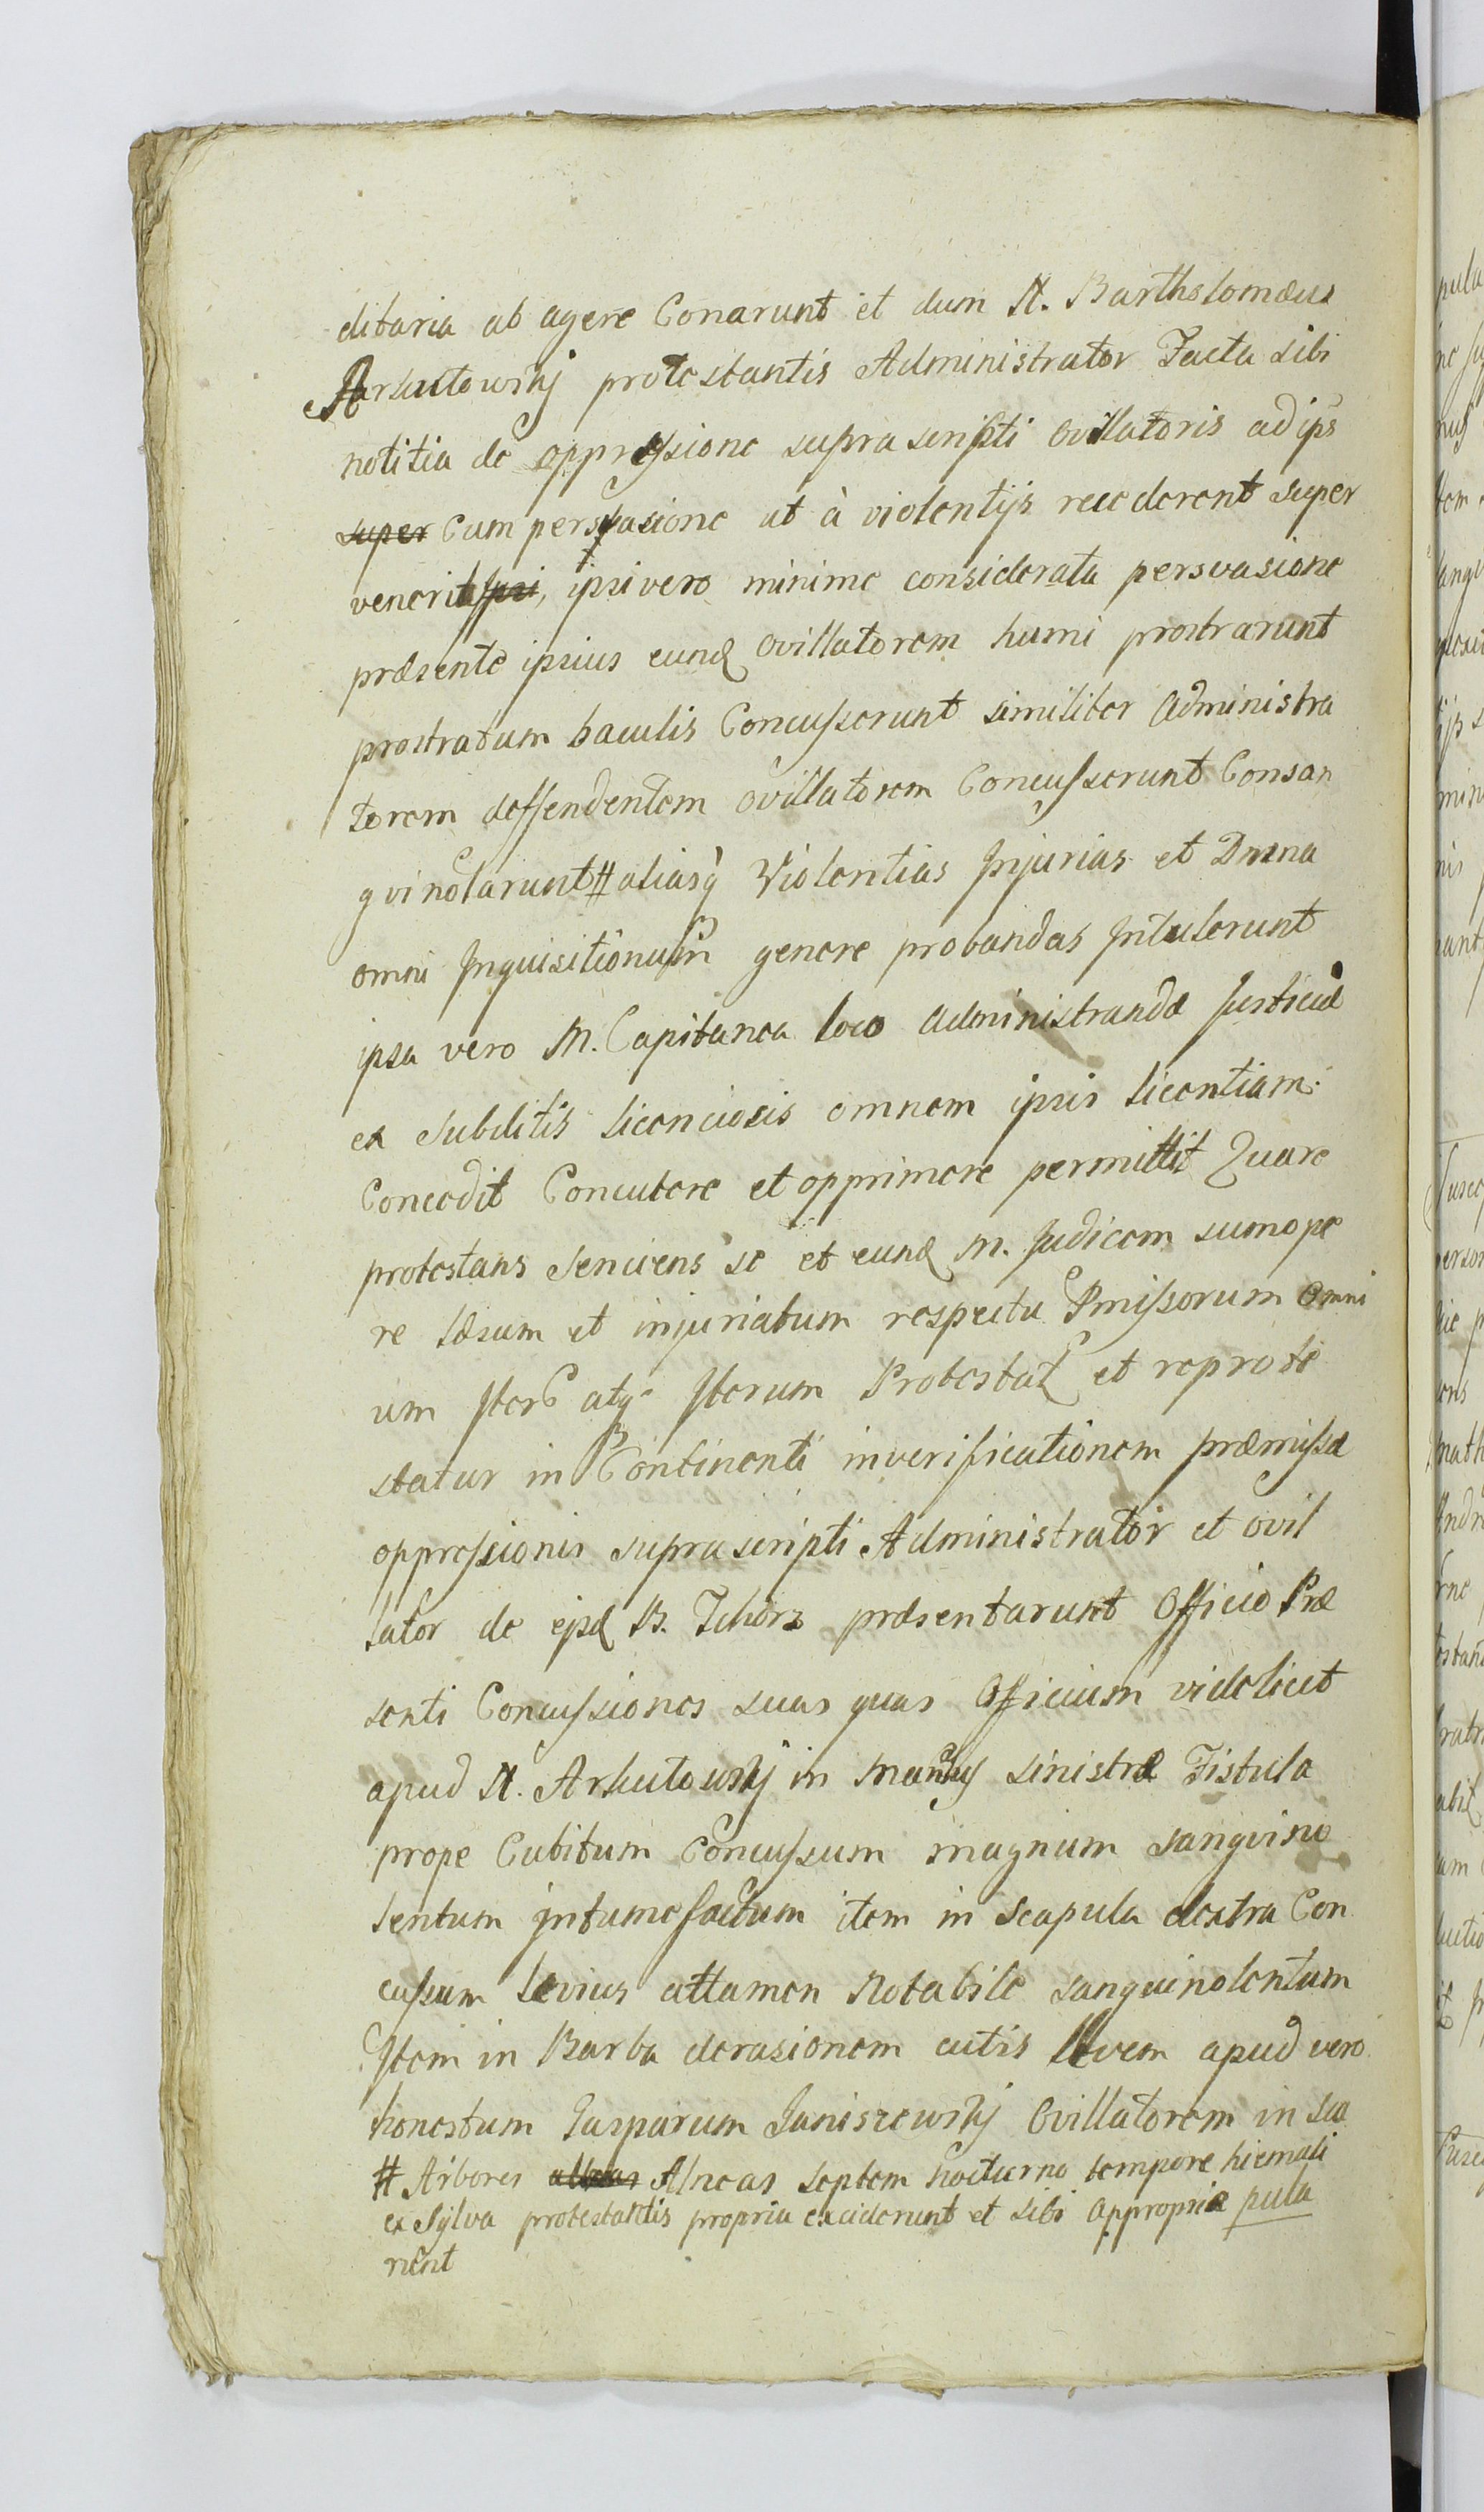 ditaria ab agere Conarunt et dum N. Bartholomæus
Arkutowskj protestantis Administrator Facta sibi
notitia de oppressione suprascripti ovillatoris ad ips
super Cum persvasione ut à violentijs recederent super
venerit, ipsi vero minime considerata persvasione
præsente ipsius eund ovillatorem humi prostrarunt
prostratum baculis Concusserunt similiter Administra
torem deffendentem ovillatorem Concusserunt Consan
gvinolarunt # aliasq Violentias Injurias et Dmna
omni Inquisitionum genere probandas Intulerunt
ipsa vero M. Capitanea loco administrandæ Justiciæ
ex Subditis licenciosis omnem ipsis licentiam
Concedit Concutere et opprimere permittit Quare
protestans Senciens se et eund M. Judicem sumope
re læsum et injuriatum respectu Pmissorum omni
um Iter atq Iterum Protestat et reprote
statur in Continenti in verificationem præmissæ
oppressionis suprascripti Administrator et ovil
lator de ejsd B. Tchorz præsentarunt Officio Præ
senti Concussiones suas quas Officium videlicet
apud N. Arkutowskj in manus sinistræ Fistula
prope Cubitum Concussum magnum sangvino
lentum intumefactum item in Scapula dextra Con
cussum levius attamen Notabile sanguinolentum
Item in Barba derasionem cutis levem apud vero
honestum Gasparum Janiszewskj Ovillatorem in sca
# Arbores Alneas septem nocturno tempore hiemali
ex Sylva protestantis propria exciderunt et sibi appropria pula
runt